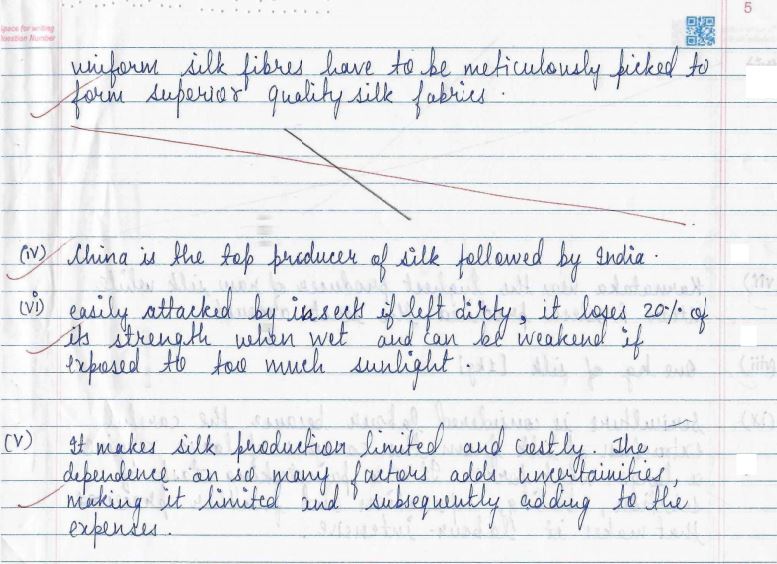 5
Space for writing
Question Number
uniform silk fibres have to be meticulously picked to
form superior quality silk fabrics.
(iv) China is the top producer of silk followed by India.
(vi) easily attacked by insects if left dirty, it loses 20% of
its strength when wet and can be weakend if
exposed to too much sunlight.
(v) It makes silk production limited and costly. The
dependence on so many factors adds uncertainities,
making it limited and subsequently adding to the
expenses.